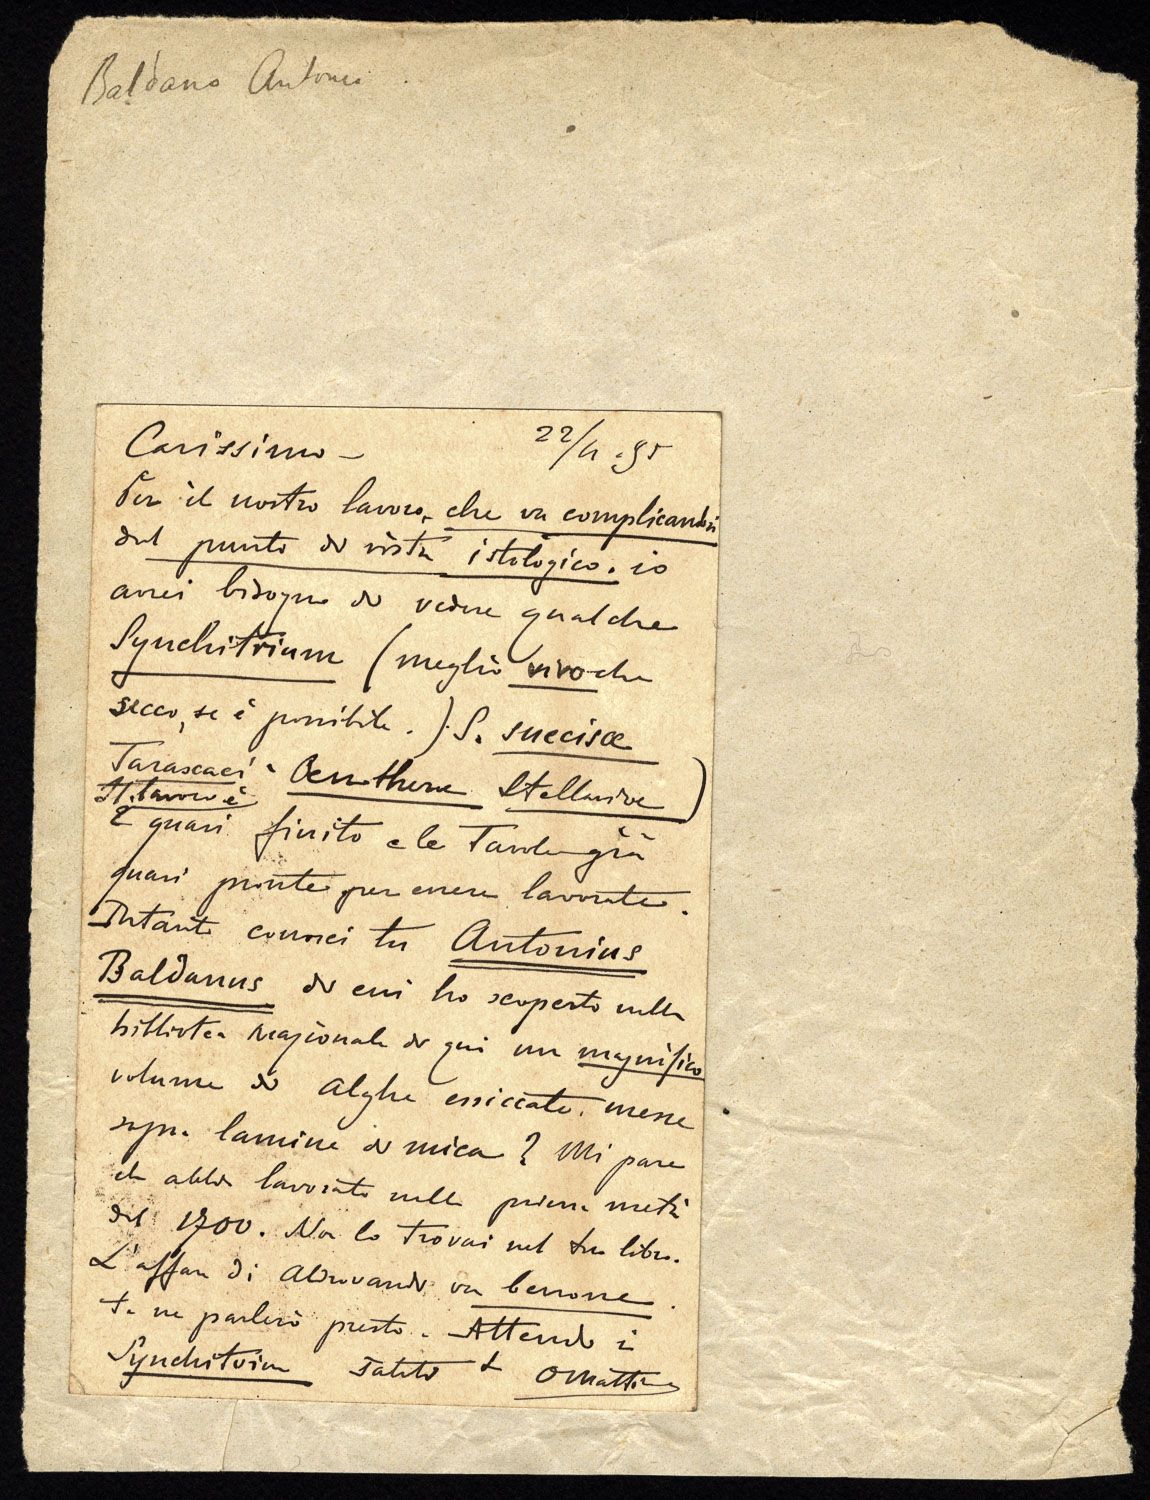 Baldano Antonio
Carissimo –
22/4.95
Per il nostro lavoro, che va complicandosi
dal punto di vista istologico. io
avrei bisogno di vedere qualche
Synchitrium (meglio vivo che
secco, se è possibile.) S. succisae
Taraxaci - Oenotherae Stellariae)
Il lavoro è
è quasi finito e le Tavole già
quasi pronte per essere lavorate.
Intanto conosci tu Antonius
Baldanus di cui ho scoperto nella
biblioteca Nazionale di qui un magnifico
volume di Alghe essiccate messe
sopra lamine di mica? Mi pare
che abbia lavorato nella prima metà
del 1700. Non lo trovai nel tuo libro.
L'affare di Aldrovandi va benone.
te ne parlerò presto. Attendo i
Synchitrium Saluto OMattirolo